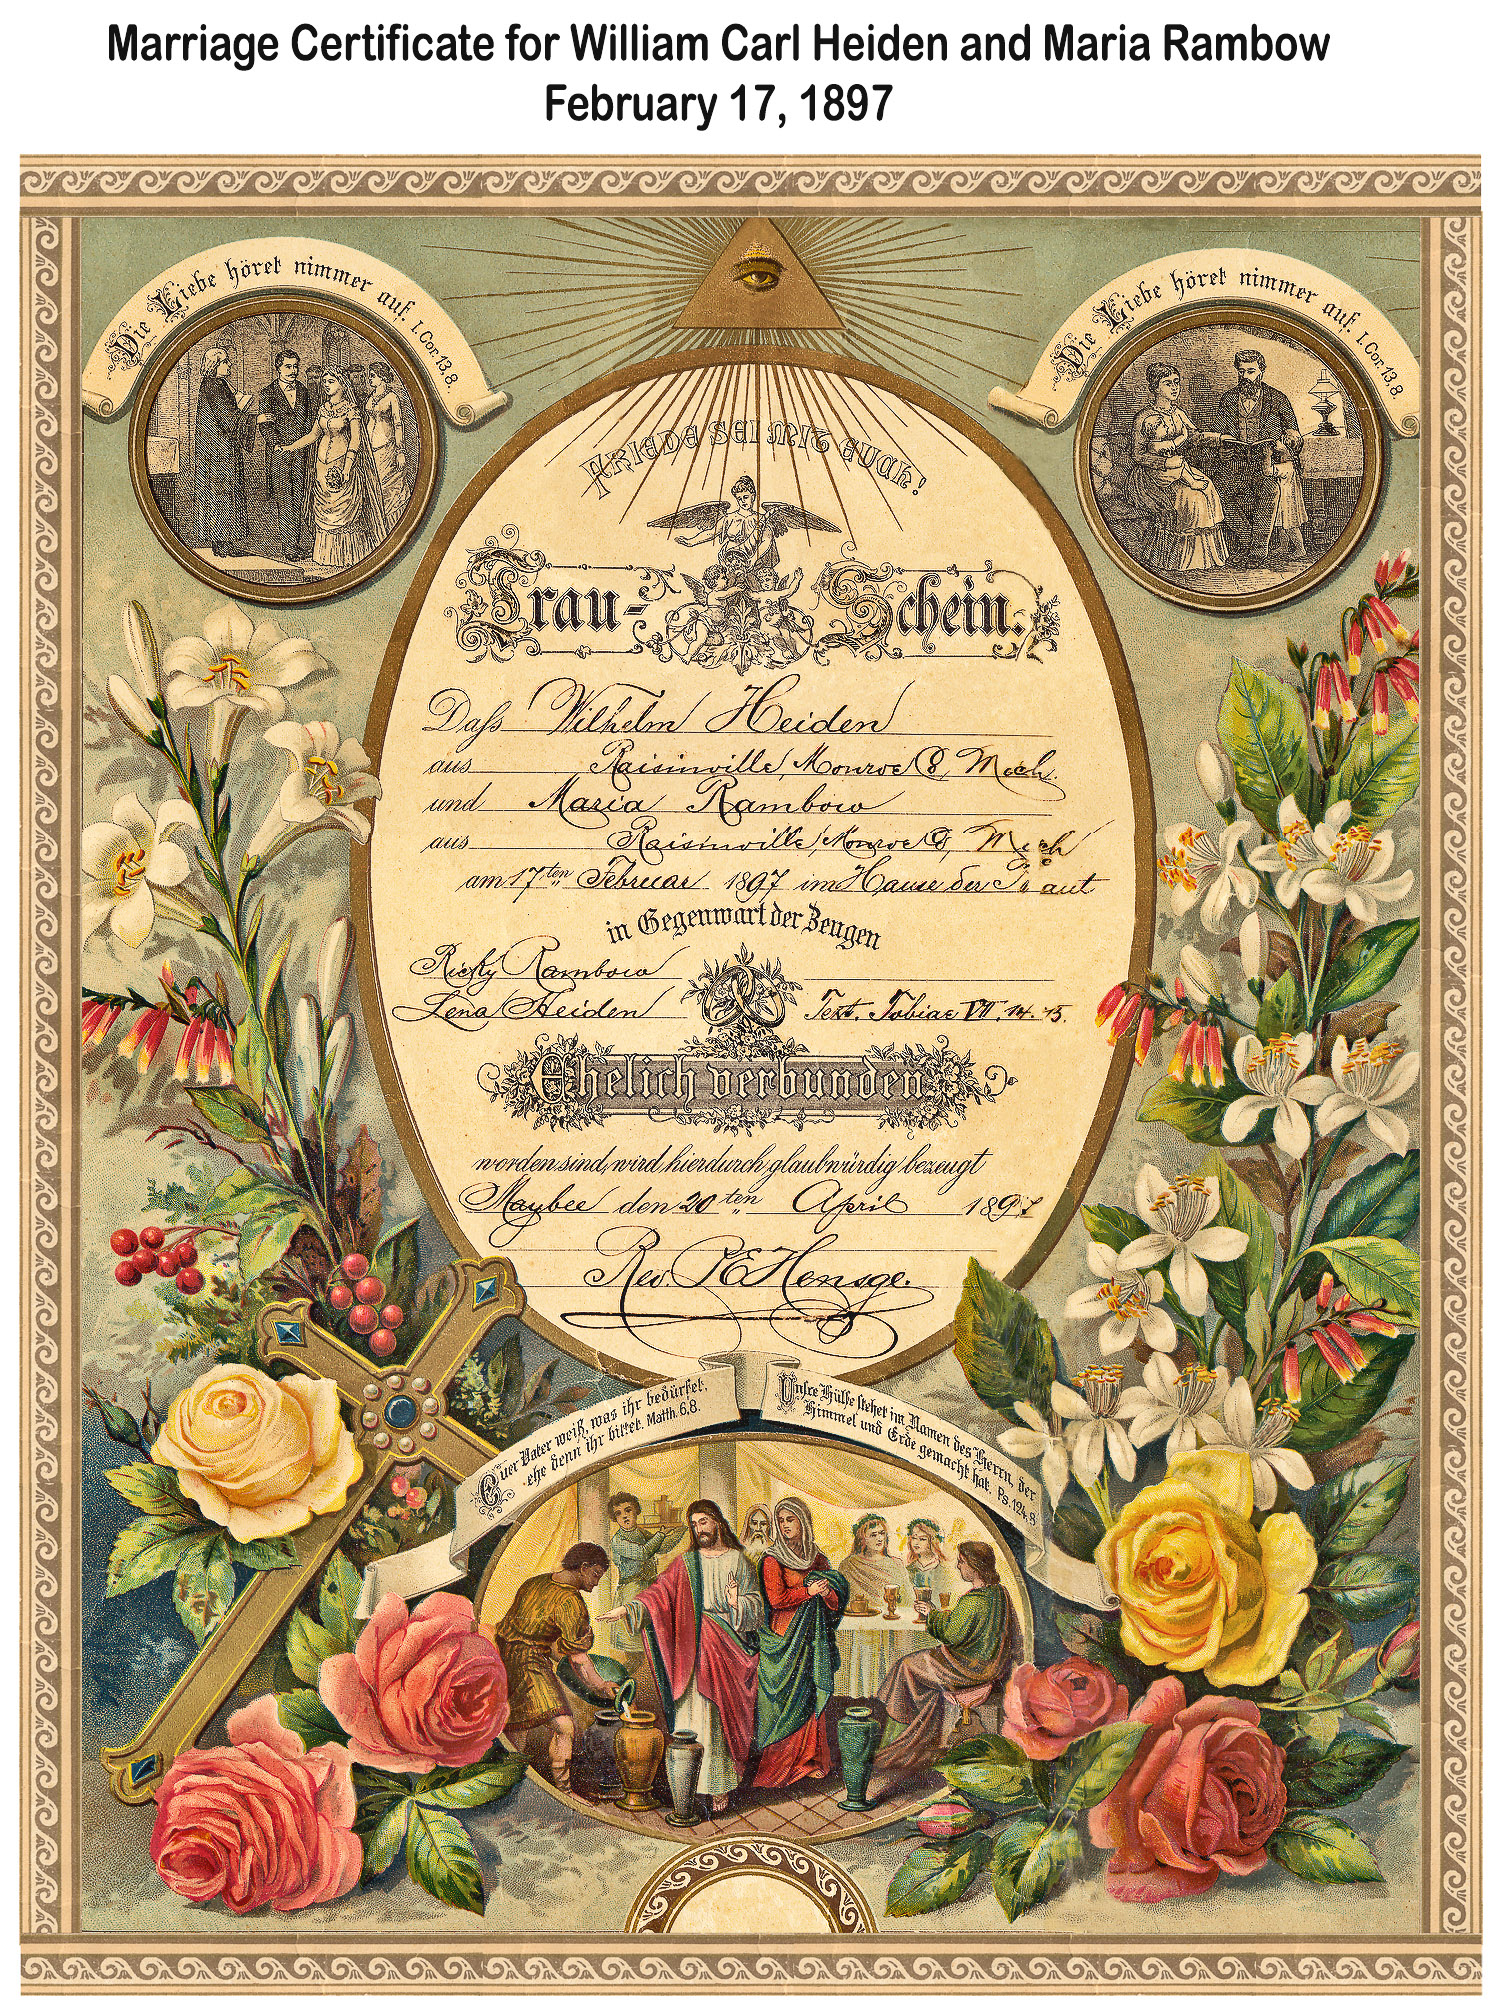 Marriage Certificate for William Carl Heiden and Maria Rambow
February 17, 1897
Die Liebe höret nimmer auf. 1.Cor.13,8.
Die Liebe höret nimmer auf. 1.Cor.13,8.
FRIEDE SEI MIT EUCH!
Trau-Schein.
Daß Wilhelm Heiden
aus Raisinville, Monroe Co, Mich.
und Maria Rambow
aus Raisinville, Monroe Co, Mich
am 17ten Februar 1897 im Hause der Braut
in Gegenwart der Zeugen
Ricky Rambow
Lena Heiden Text. Tobiae VII. 14. 15.
Ehelich verbunden
worden sind, wird hierdurch glaubwürdig bezeugt
Maybee den 20ten April 1897
Rev. Hensge.
Euer Vater weiß, was ihr bedürfet,
ehe denn ihr bittet. Matth. 6,8.
Unsre Hülfe stehet im Namen des Herrn, der
Himmel und Erde gemacht hat. Ps. 124,8